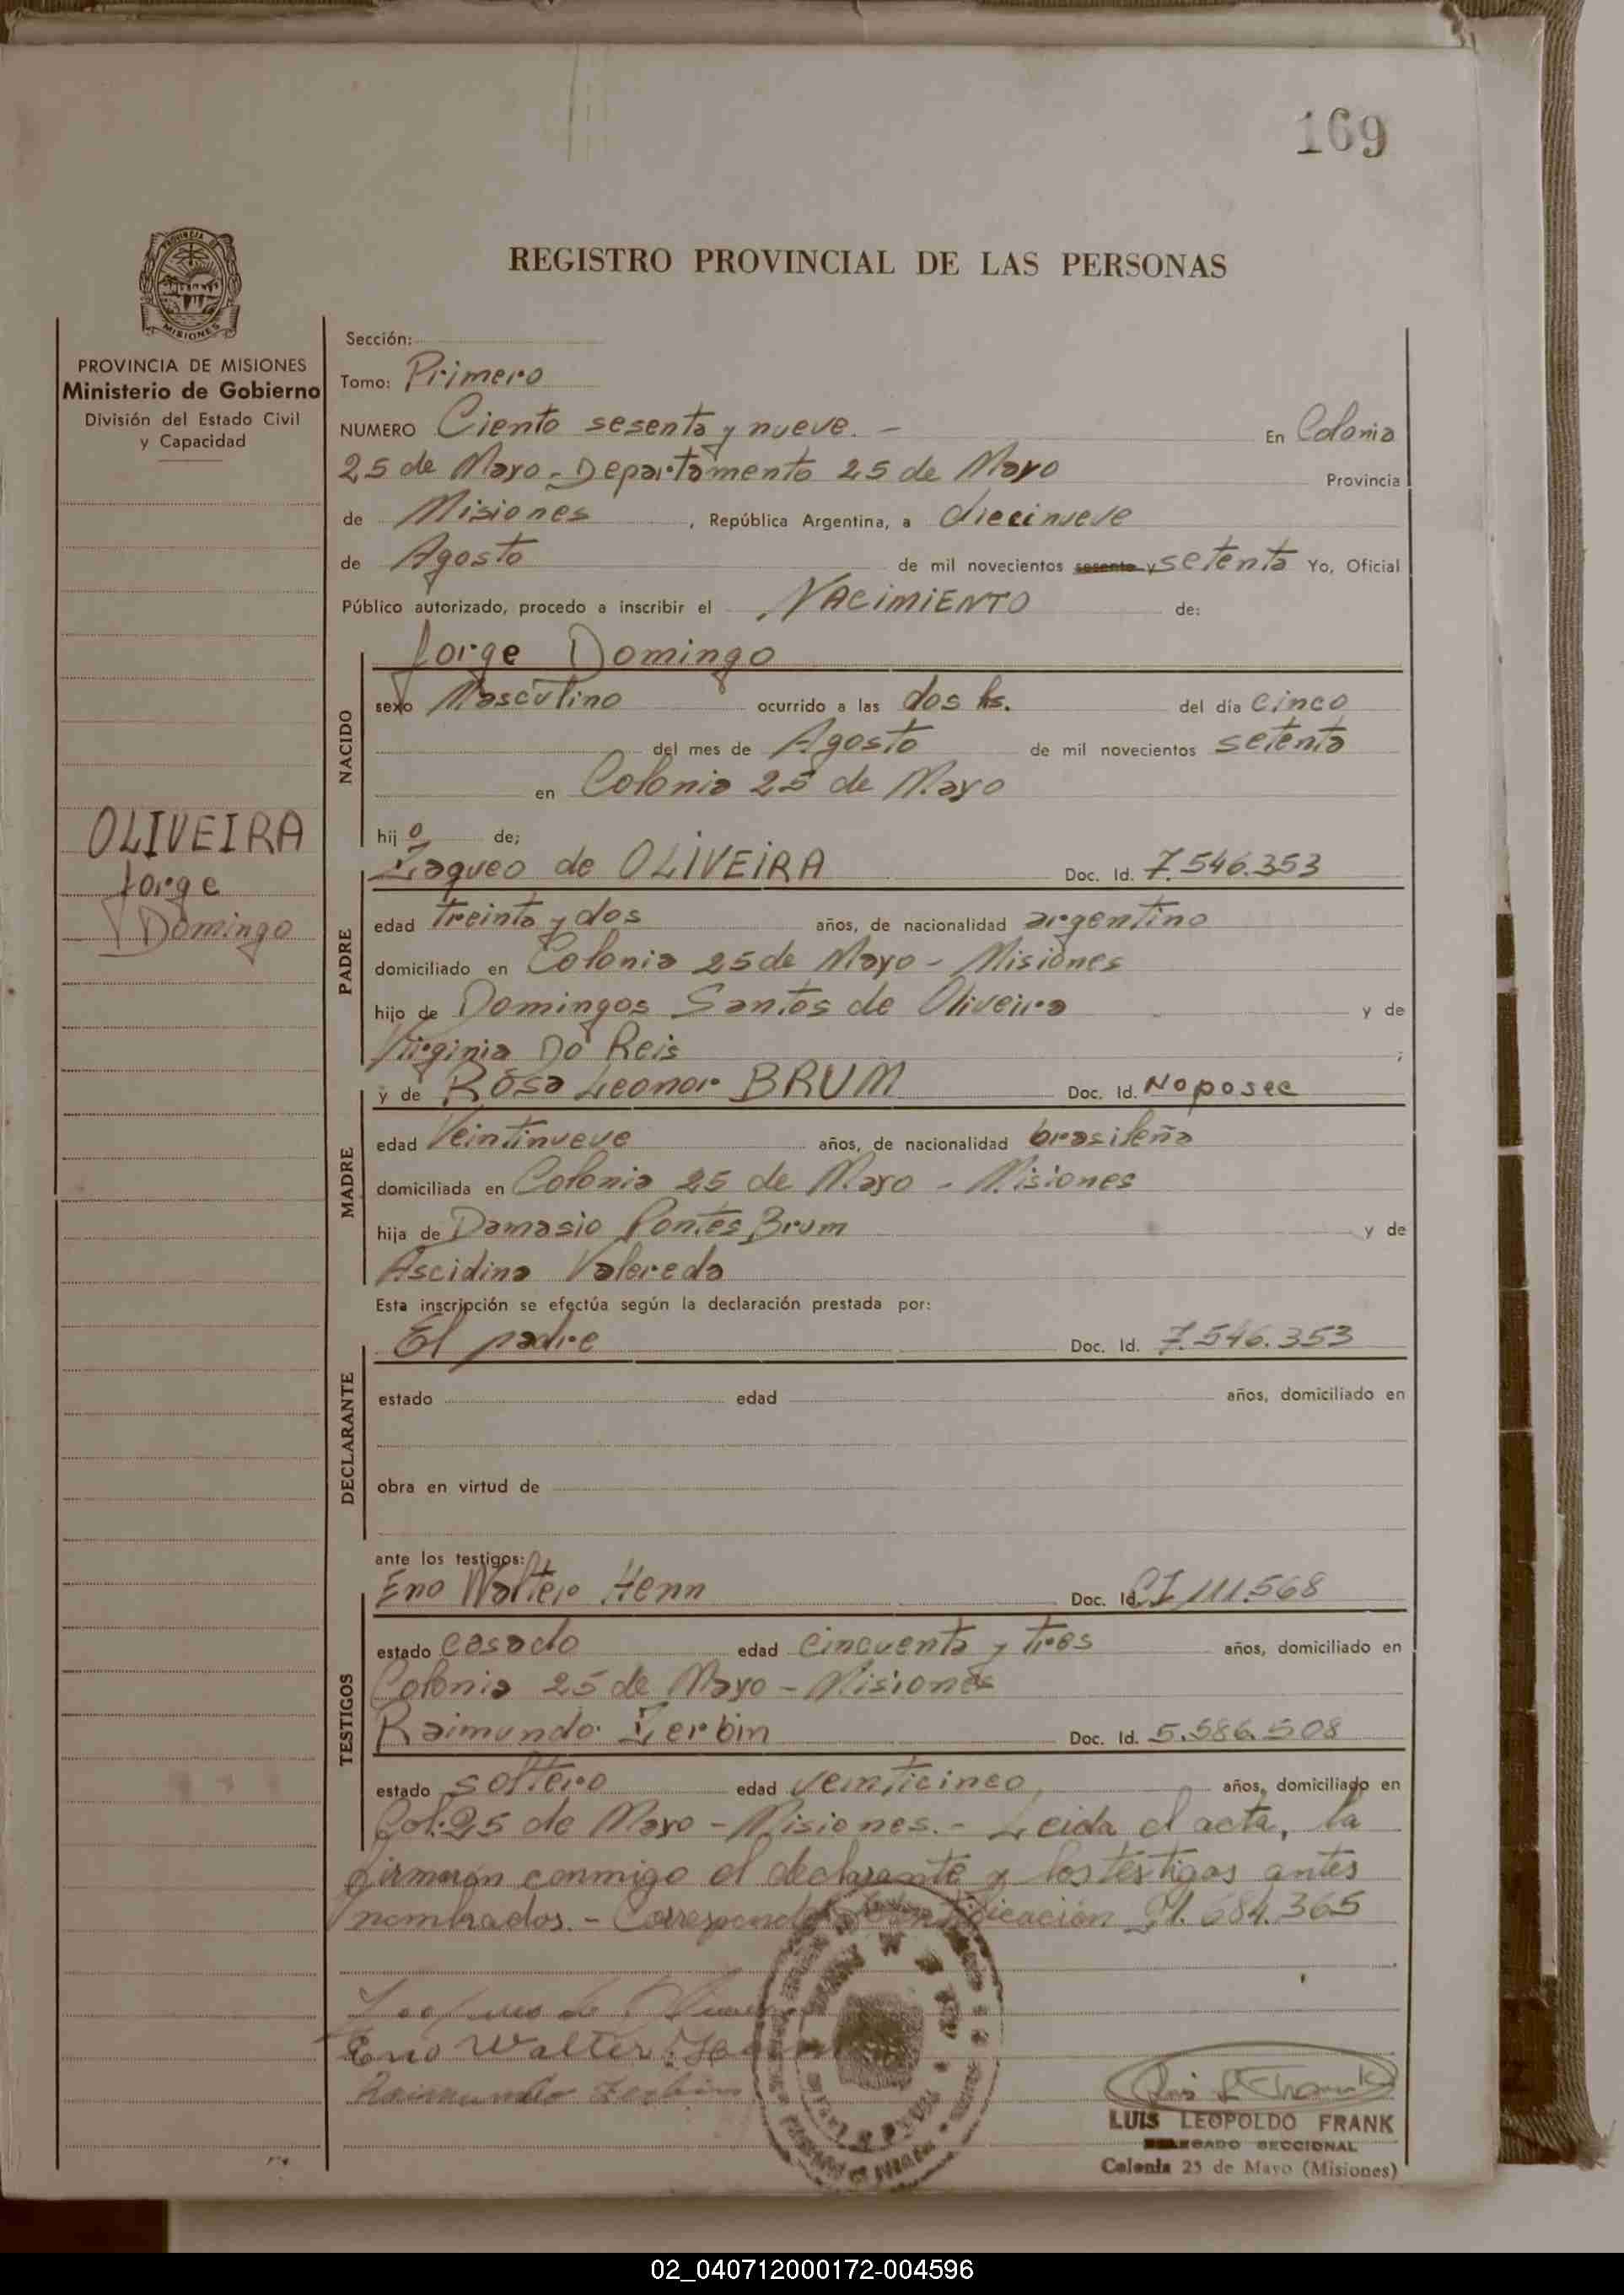 169
PROVINCIA DE MISIONES
MISIONES
PROVINCIA DE MISIONES
Ministerio de Gobierno
División del Estado Civil
y Capacidad
OLIVEIRA
Jorge
Domingo
REGISTRO PROVINCIAL DE LAS PERSONAS
Sección:
Tomo: Primero
NUMERO Ciento sesenta y nueve. - En Colonia
25 de Mayo - Departamento 25 de Mayo Provincia
de Misiones, República Argentina, a diecinueve
de Agosto de mil novecientos sesenta y setenta Yo, Oficial
Público autorizado, procedo a inscribir el NACIMIENTO de:
NACIDO
Jorge Domingo
sexo Masculino ocurrido a las dos hs. del día cinco
del mes de Agosto de mil novecientos setenta
en Colonia 25 de Mayo
hijo de;
PADRE
Zaqueo de OLIVEIRA Doc. Id. 7.546.353
edad treinta y dos años, de nacionalidad argentino
domiciliado en Colonia 25 de Mayo - Misiones
hijo de Domingos Santos de Oliveira y de
Virginia Do Reis ;
MADRE
y de Rosa Leonor BRUM Doc. Id. No posee
edad Veintinueve años, de nacionalidad brasileña
domiciliada en Colonia 25 de Mayo - Misiones
hija de Damasio Pontes Brum y de
Ascidina Valereda
Esta inscripción se efectúa según la declaración prestada por:
DECLARANTE
El padre Doc. Id. 7.546.353
estado edad años, domiciliado en
obra en virtud de
ante los testigos:
TESTIGOS
Eno Walter Henn Doc. Id. CI 111.568
estado casado edad cincuenta y tres años, domiciliado en
Colonia 25 de Mayo - Misiones
Raimundo Zerbin Doc. Id. 5.586.508
estado soltero edad veinticinco, años, domiciliado en
Col. 25 de Mayo - Misiones. - Leida el acta, la
firman conmigo el declarante y los testigos antes
nombrados. - Corresponde Identificación M. 684.365
Eno Walter Henn
Raimundo Zerbin
LUIS LEOPOLDO FRANK
DELEGADO SECCIONAL
Colonia 25 de Mayo (Misiones)
02_040712000172-004596